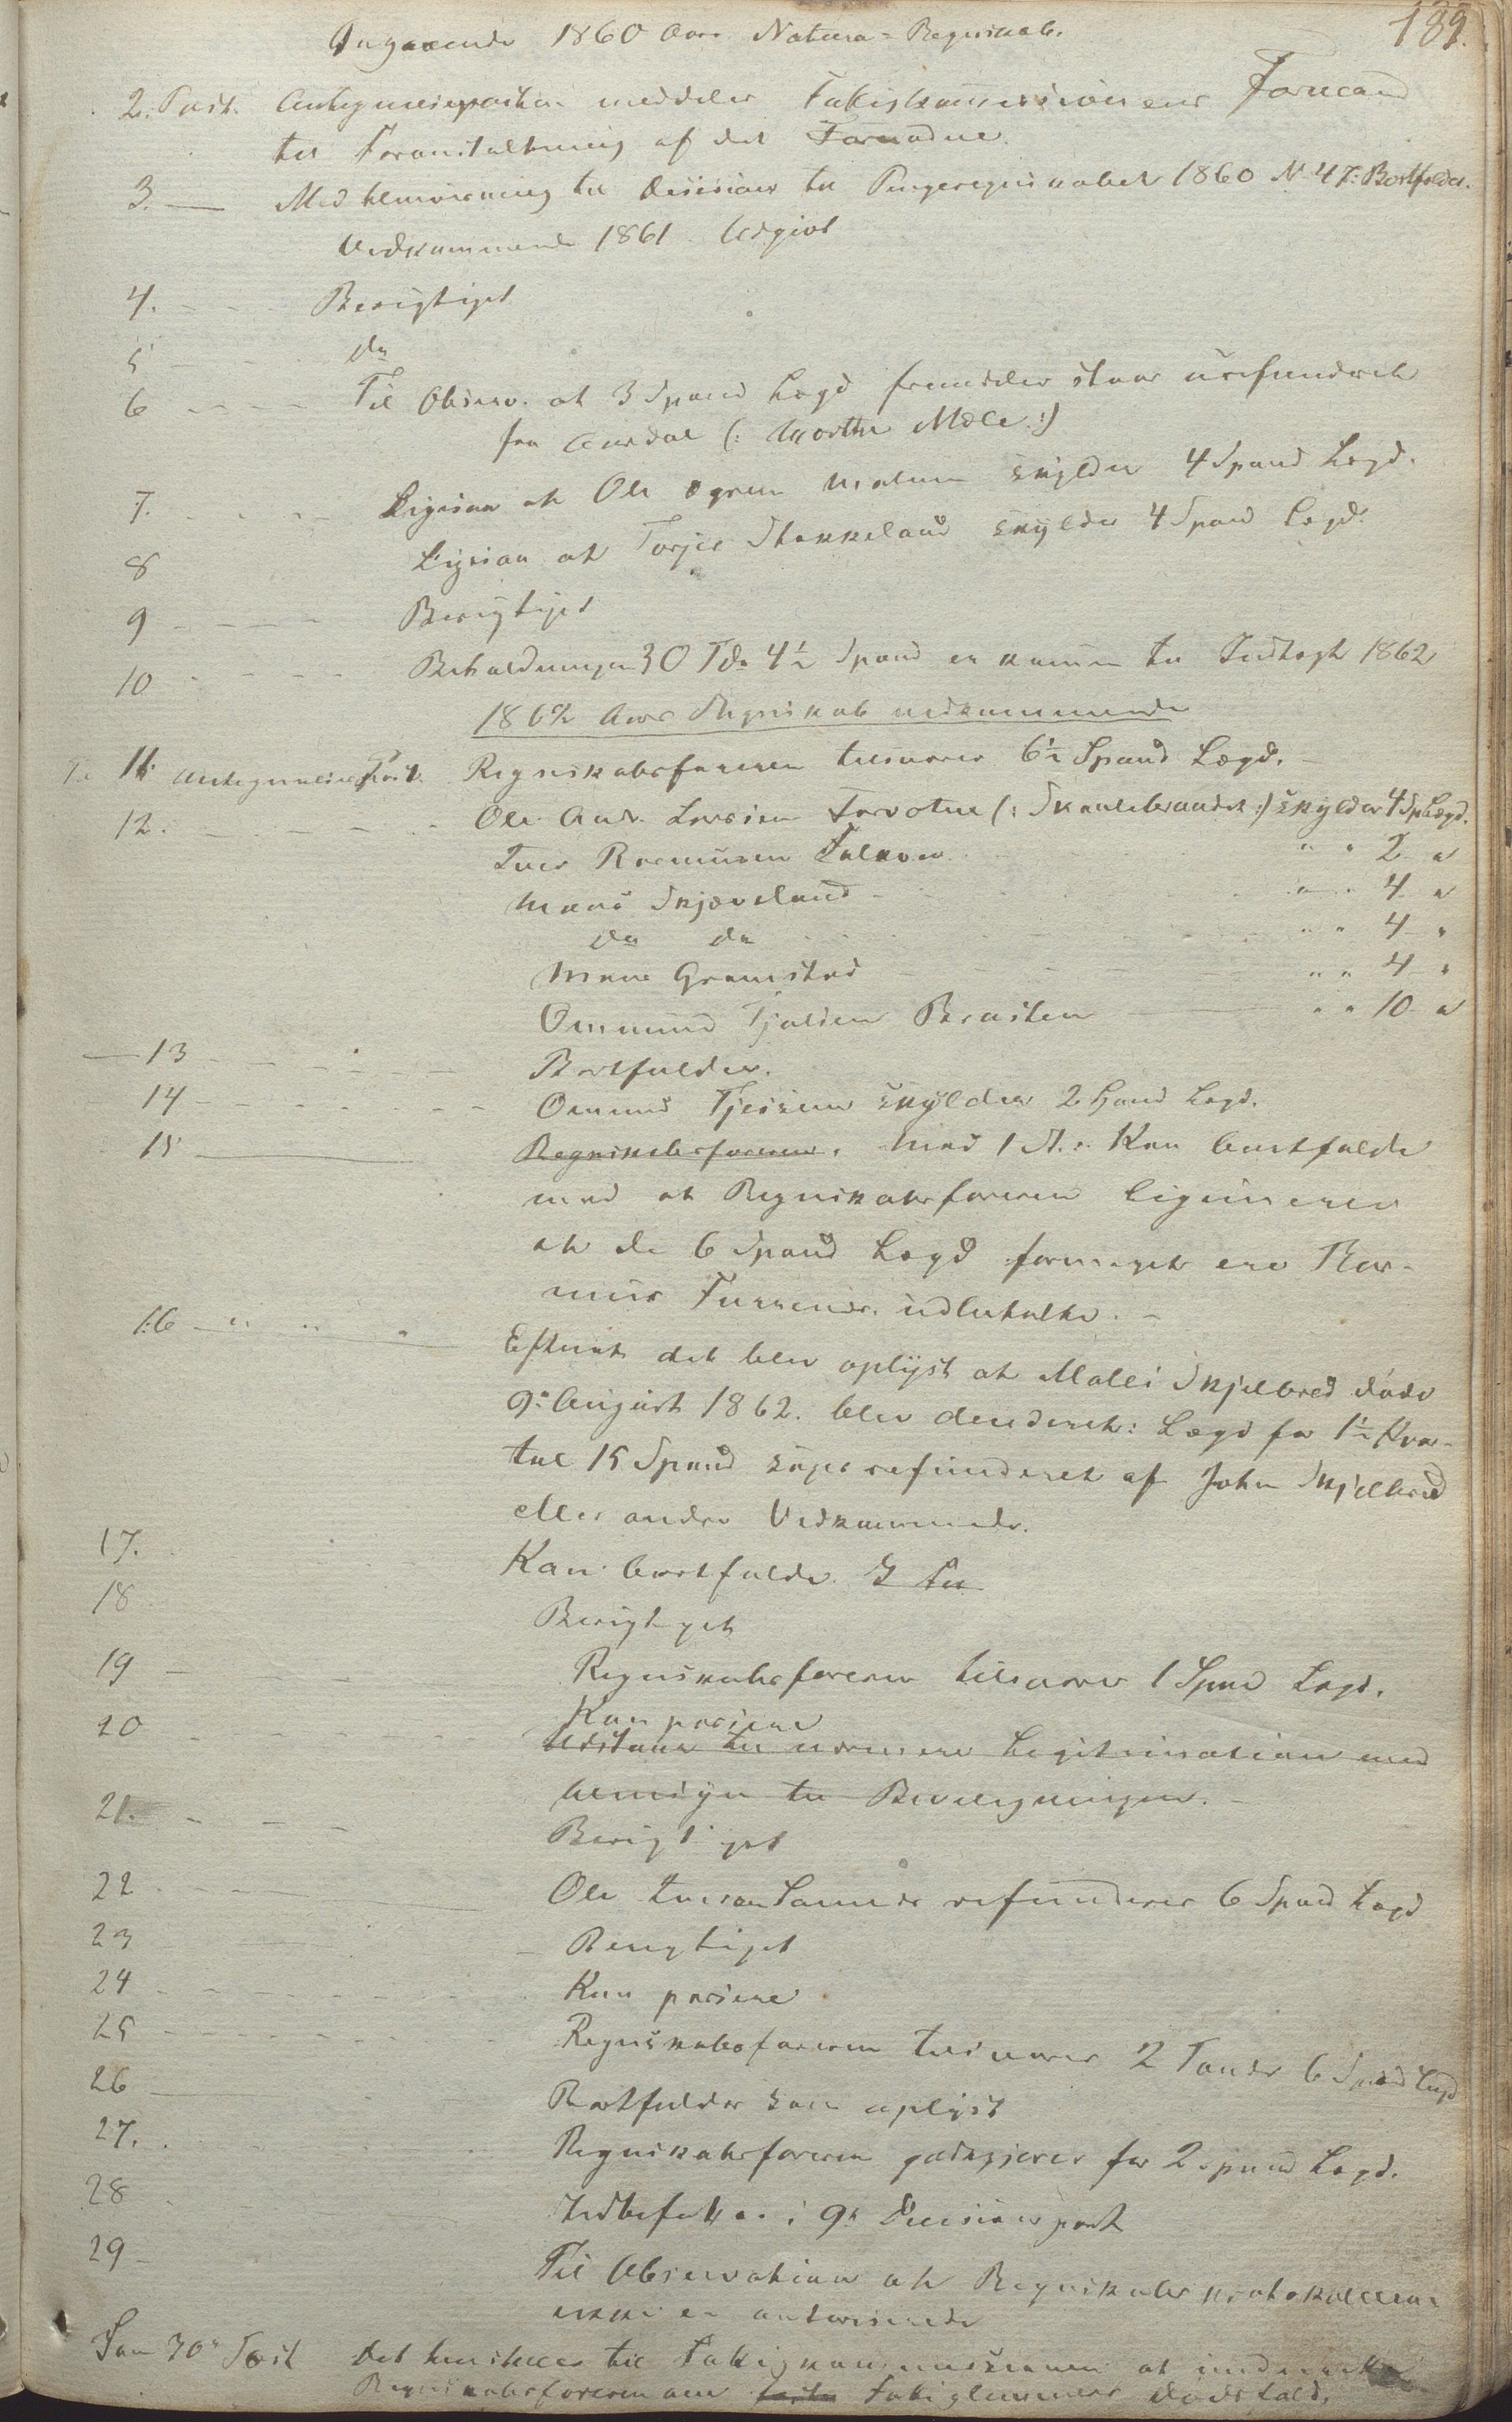 189.
Angaaende 1860 Aars Natura-Regnskab.
2. Post. Antegnelsesposten meddeles Fattigkommissionens Formand
til Foranstaltning af det Fornødne.
3. — Med Henvisning til Decision til Pengeregnskabet 1860 N 47: Bortfalder.
Vedkommende 1861 Udgivt
4. - - - Berigtiget
5 - - do
6 - - - - Til Observ. at 3 Spand Lægd fremdeles staar urefunderet
fra Aardal (: Marthe Mæle :)
7. - - - - Ligesaa at Ole Malum skylder 4 Spand Lægd.
8 Ligesaa at Torjer Stokkeland skylder 4 Spand Lægd.
9 - - - - Berigtiget
10 - - - - Beholdningen 30 Tdr 4½ Spand er kommen til Indtægt 1862
186½ Aars Regnskab vedkommende
Til 11. Antegnelses Post. Regnskabsføreren tilsvarer 6½ Spand Lægd. -
12. - - - - Ole Andr. Larsen Torvotne (: Skaulebrandet :) skylder 4 Sp Lægd.
Iver Rasmusen " " 2 "
Maus Skjæveland - " " 4 "
do do " " 4 "
Mane Gramstad " " 4 "
Ommund Tjalsen Braaten " " 10 "
— 13 - - - - Bortfalder.
14 - - - - Ommund skylder 2 Spand Lægd.
15 ——— Regnskabsføreren. Med 1 St.: Kan bortfalde
med at Regnskabsføreren
at de 6 Spand Lægd formeget ere Ras-
mus udbetalte. -
16 - " " " — Efterat det blev oplyst at Malli Skjelbred døde
9de August 1862. blev Lægd for 1½ Kvar-
tal 15 Spand refunderet af John Skjelbred
eller andre Vedkommende.
17. Kan bortfalde.
18 Berigtiget
19 - Regnskabsføreren tilsvarer 1 Spand Lægd.
20 Kan passere
Udstaar til nærmere Legitimation med
Hensyn til Bevilgningen. -
21. - - - Berigtiget
22 - - Ole Iversen refunderer 6 Spand Lægd
23 - Berigtiget
24 - - - - Kan passere
25 - - - - Regnskabsføreren tilsvarer 2 Tønder 6 Spand Lægd
26 ——— Bortfalder som oplyst
27. - Regnskabsføreren godtgjøres for 2 Spand Lægd.
28 Indbefattes i 9de Decisionspost
29 - Til Observation at Regnskabs protokollerne
ikke er
30te Post Det henstilles til Fattigkommissionen at underrette
Regnskabsføreren om Fattiglemmers Dødsfald.